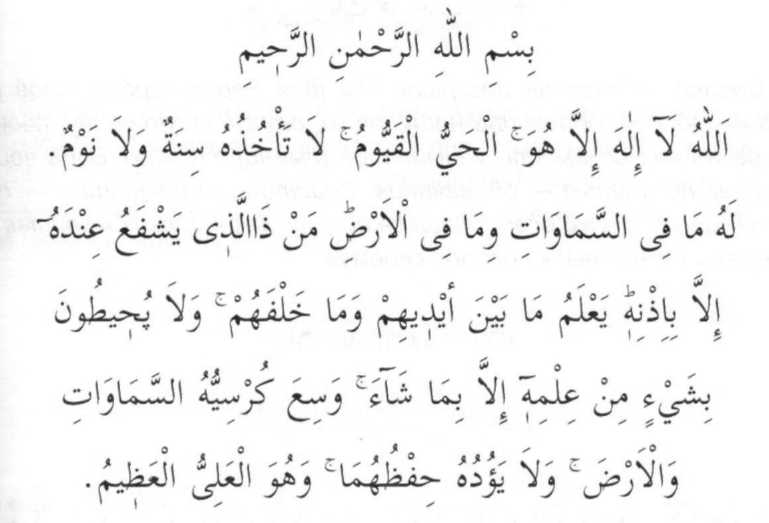 بِسْمِ اللّٰهِ الرَّحْمٰنِ الرَّحٖيمِ
اَللّٰهُ لَآ اِلٰهَ إِلَّا هُوَۚ اَلْحَيُّ الْقَيُّومُۚ لَا تَأْخُذُهُ سِنَةٌ وَلَا نَوْمٌ.
لَهُ مَا فِى السَّمَاوَات وَمَا فِى الْاَرْضِؕ مَنْ ذَاالَّذٖى يَشْفَعُ عِنْدَهُٓ
إِلَّا بِاِذْنِهِؕ يَعْلَمُ مَا بَيْنَ أَيْدٖيهِمْ وَمَا خَلْفَهُمْۚ وَلَا يُحٖيطُونَ
بِشَيْءٍ مِنْ عِلْمِهِٓ إِلَّا بِمَا شَآءَۚ وَسِعَ كُرْسِيُّهُ السَّمَاوَاتِ
وَالْاَرْضَۚ وَلَا يَؤُدُهُ حِفْظُهُمَاۚ وَهُوَ الْعَلِىُّ الْعَظٖيمُ.